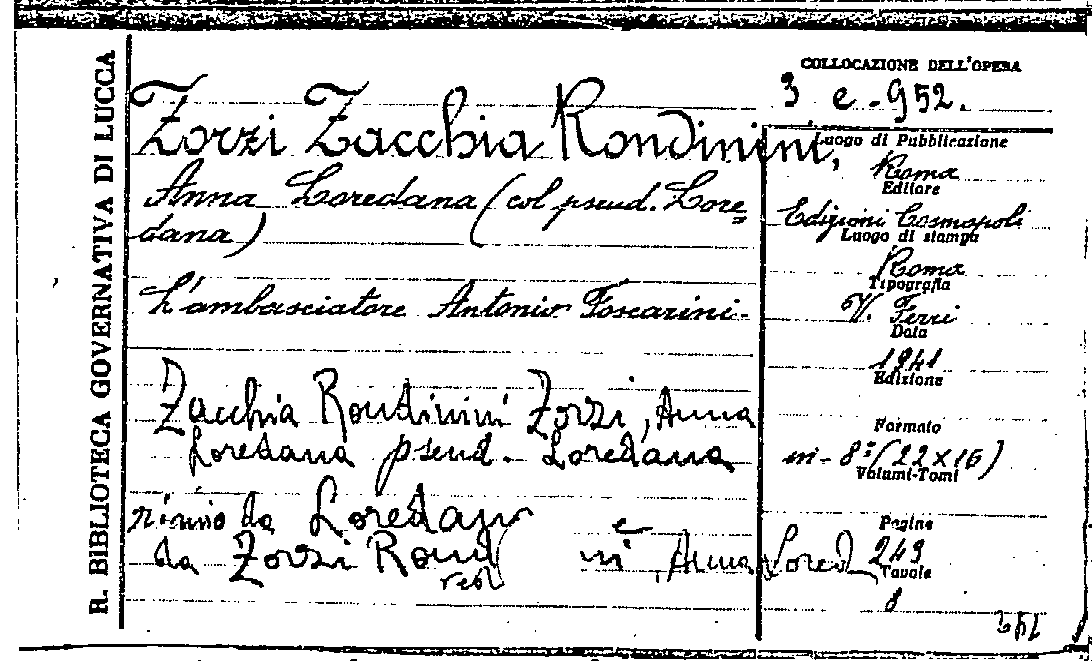 R. BIBLIOTECA GOVERNATIVA DI LUCCA
COLLOCAZIONE DELL'OPERA
3 e - 952.
Zorzi Zacchia Rondinini,
Anna Loredana (col pseud. Lore=
dana)
L'ambasciatore Antonio Foscarini -
Zacchia Rondinini Zorzi, Anna
Loredana pseud. Loredana
rinvio da Loredana
da Zorzi Rond ni, Anna Lored
Luogo di Pubblicazione
Roma
Editore
Edizioni Cosmopoli
Luogo di stampa
Roma
Tipografia
V. Ferri
Data
1941
Edizione
Formato
in - 8° (22 x 16)
Volumi-Tomi
Pagine
243
Tavole
8